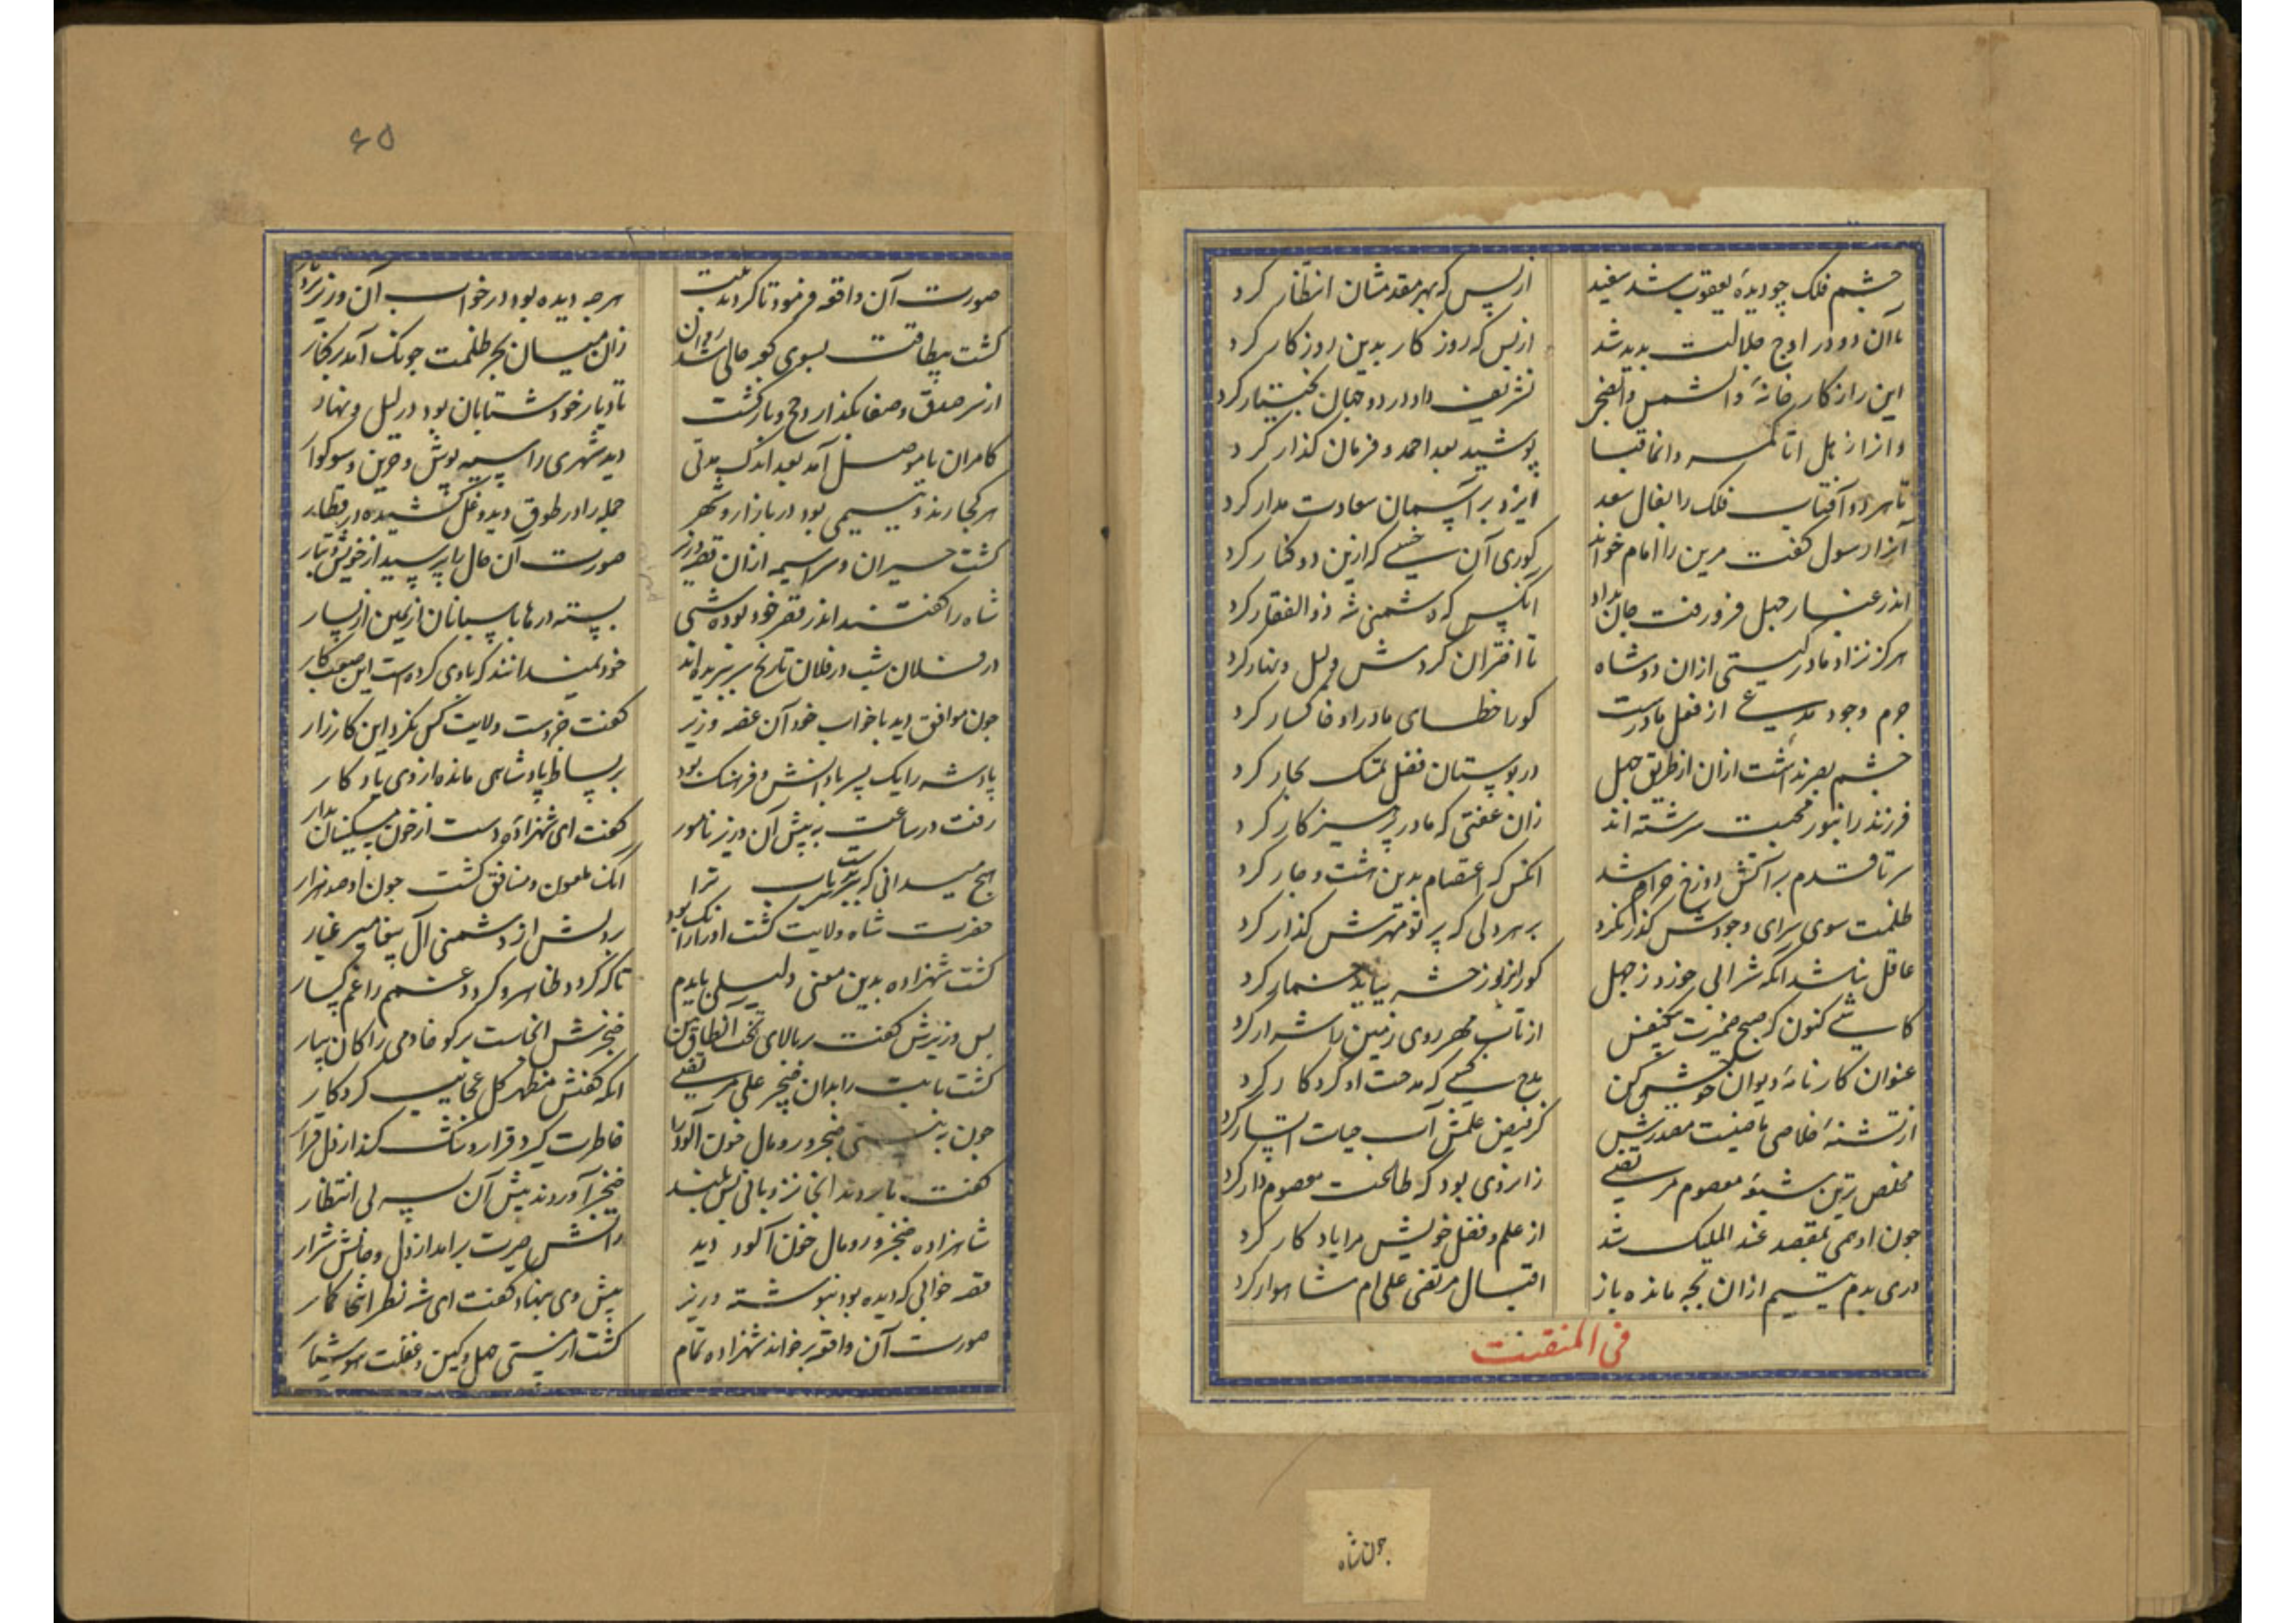 چشم فلک چو دیدهٔ یعقوب شد سفید
از بس که بهر مقدمشان انتظار کرد
تا آن دو در اوج جلالت پدید شد
از بس که روزکار بدین روزکار کرد
این را ز کارخانهٔ والشمس والفجر
تشریف داد در دو جهان بختیار کرد
پوشید بعد احمد و فرمان کذار کرد
تا هر دو آفتاب فلک را بفال سعد
ایزد بر آسمان سعادت مدار کرد
آنرا رسول کفت مرین را امام خواند
کوری آن خسی که ازین دو کنار کرد
اندر غبار جهل فرو رفت جان بداد
انکس که دشمنی شه ذوالفقار کرد
هرکز نزاد مادر کیتی ازان دو شاه
تا اقتران کردش لیل و نهار کرد
جرم وجود مدعی از فعل مادرست
کورا خطای مادر او خاکسار کرد
چشم بصر نداشت ازان از طریق جهل
در بوستان فضل تمسک بخار کرد
فرزند را بنور محبت سرشته اند
زان عفتی که مادر پرهیزکار کرد
سر تا قدم بر آتش دوزخ حرام شد
انکس که اعتصام بدین هشت و چار کرد
ظلمت سوی سرای وجودش کذر نکرد
بر هر دلی که پرتو مهرش کذار کرد
عاقل نباشد انکه شرابی خورد ز جهل
کورا بروز حشر نباید خمار کرد
کاشی کنون که صبح ضمیرت
از تاب مهر روی زمین را شرار کرد
عنوان کارنامهٔ دیوان خویش کن
مدح کسی که مدحت او کردکار کرد
از تشنهٔ خلاصی
کز فیض علمش آب حیات
مخلص ترین شیوهٔ معصوم مرتضی
زانروی بود که طالعت معصوم وار کرد
چون آدمی بمقصد عند الملیک شد
از علم و فضل خویش مرا یادکار کرد
دری بدم یتیم ازان بحر مانده باز
اقبال مرتضی علی ام شاهوار کرد
فی المنقبت
جون شاه
۶۵
صورت آن واقعه فرمود تا کردند ثبت
هر چه دیده بود در خواب آن وزیر
کشت بیطاقت بسوی کوه حالی شد روان
زان میان بحر ظلمت چونک آمد بر کنار
از سر صدق و صفا بکذارد حج و بازکشت
تا دیار خود شتابان بود در لیل و نهار
کامران با موصل آمد بعد اندک مدتی
دید شهری را سیه پوش و حزین و سوکوار
هر کجا رند و یتیمی بود در بازار و شهر
جمله را در طوق دید و غل کشیده در قطار
کشت حیران و سراسیمه ازان قصه وزیر
صورت آن حال را پرسید از خویش و تبار
شاه را کفتند اندر قصر خود بوده شبی
بسته درها پاسبانان از یمین از یسار
در فلان شب در فلان تاریخ سر ببریده اند
خود نمیدانند که بادی کرده است این صعب کار
چون موافق دید با خواب خود آن غصه وزیر
کفت جز دست ولایت کس نکرد این کارزار
پادشه را یک پسر با دانش و فرهنک بود
بر بساط پادشاهی مانده از وی یادکار
رفت در ساعت به پیش آن وزیر نامور
کفت ای شهزاده دست از خون مسکینان بدار
هیچ میدانی که سر باب ترا
انک ملعون و منافق کشت چون او صد هزار
حضرت شاه ولایت کشت او را زانک بود
بر دلش از دشمنی آل پیغامبر غبار
کشت شهزاده بدین معنی دلیلی بایدم
تا که کردد ظاهر و کردد غمم را غمکسار
پس وزیرش کفت بر بالای تخت
خنجرش انجاست بر کو خادمی را کان بیار
کشت بابت را بدان خنجر علی مرتضی
انکه کفش مظهر کل عجایب کردکار
چون به بینی خنجر و رومال خون آلود را
خاطرت کیرد قرار و شک کذارد دل قرار
کفت تا بردند انجا نردبانی بس بلند
خنجر آوردند پیش آن سیه بی انتظار
شاهزاده خنجر و رومال خون آلود دید
آتش حیرت برآمد از دل و جانش شرار
قصه خوابی که دیده بود بنوشته وزیر
پیش وی بنهاد کفت ای شه نظر اینجا کمار
صورت آن واقعه برخواند شهزاده تمام
کشت از مستی جهل و کین و غفلت هوشیار